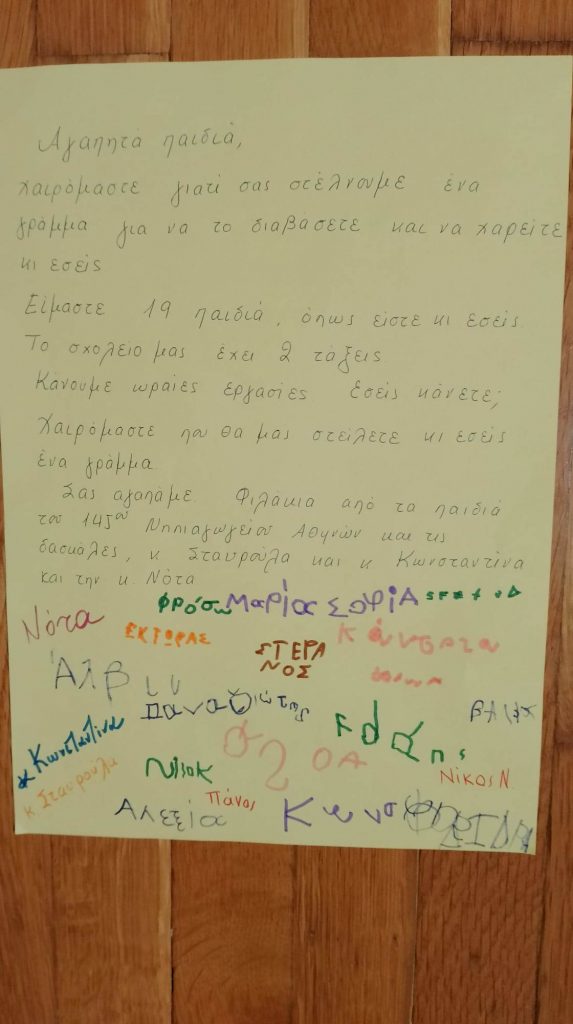 Αγαπητά παιδιά,
Χαιρόμαστε γιατί σας στέλνουμε ένα
γράμμα για να το διαβάσετε και να χαρείτε
κι εσείς
Είμαστε 19 παιδιά, όπως είστε κι εσείς.
Το σχολείο μας έχει 2 τάξεις
Κάνουμε ωραίες εργασίες Εσείς κάνετε;
Χαιρόμαστε που θα μας στείλετε κι εσείς
ένα γράμμα.
Σας αγαπάμε. Φιλάκια από τα παιδιά
του 145ου Νηπιαγωγείου Αθηνών και τις
δασκάλες, κ Σταυρούλα και κ Κωνσταντίνα
και την κ. Νότα
Νότα ΦΡΌΣω ΜαΡία ΣΟΦίΑ
ΕΚΤΩΡΑΣ ΣΤΕΡΑ
ΝΟΣ
Άλβιν
κ Κωνσταντίνα
κ Σταυρούλα Νίκος Ν.
Αλεξία Πάνος